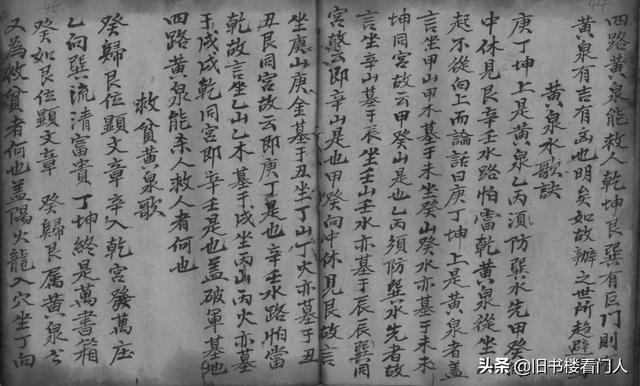 四路黄泉能救人乾坤艮巽有巨门則
黄泉有吉有凶也明矣如故辦之世所趋避
黄泉水歌訣
庚丁坤上是黄泉乙丙湏防巽水先甲癸
中休見艮辛壬水路怕當乾黄泉從坐
起不從向上而論話曰庚丁坤上是黄泉者盖
言坐甲山甲木墓于未坐癸山癸水亦墓于未未
坤同宫故云甲癸山是也乙丙須防巽水先者故
言坐辛山墓于辰坐壬山壬水亦墓于辰辰巽同
宫故云即辛山是也甲癸向中休見艮故言
坐庚山庚金墓于丑坐丁山丁火亦墓于丑
丑艮同宫故云即庚丁是也辛壬水路怕當
乾故言坐乙山乙木墓于戌坐丙山丙火亦墓
于戌戌乾同宫即辛壬是也盖破軍墓地
四路黄泉能杀人救人者何也
救貧黄泉歌
癸歸艮位顯文章辛入乾宫發萬庄
乙向巽流清富貴丁坤終是萬書箱
癸如艮位顯文章 癸歸艮属黄泉
又為救貧者何也盖陽火龍入穴坐丁向
头条 @旧书楼看门人